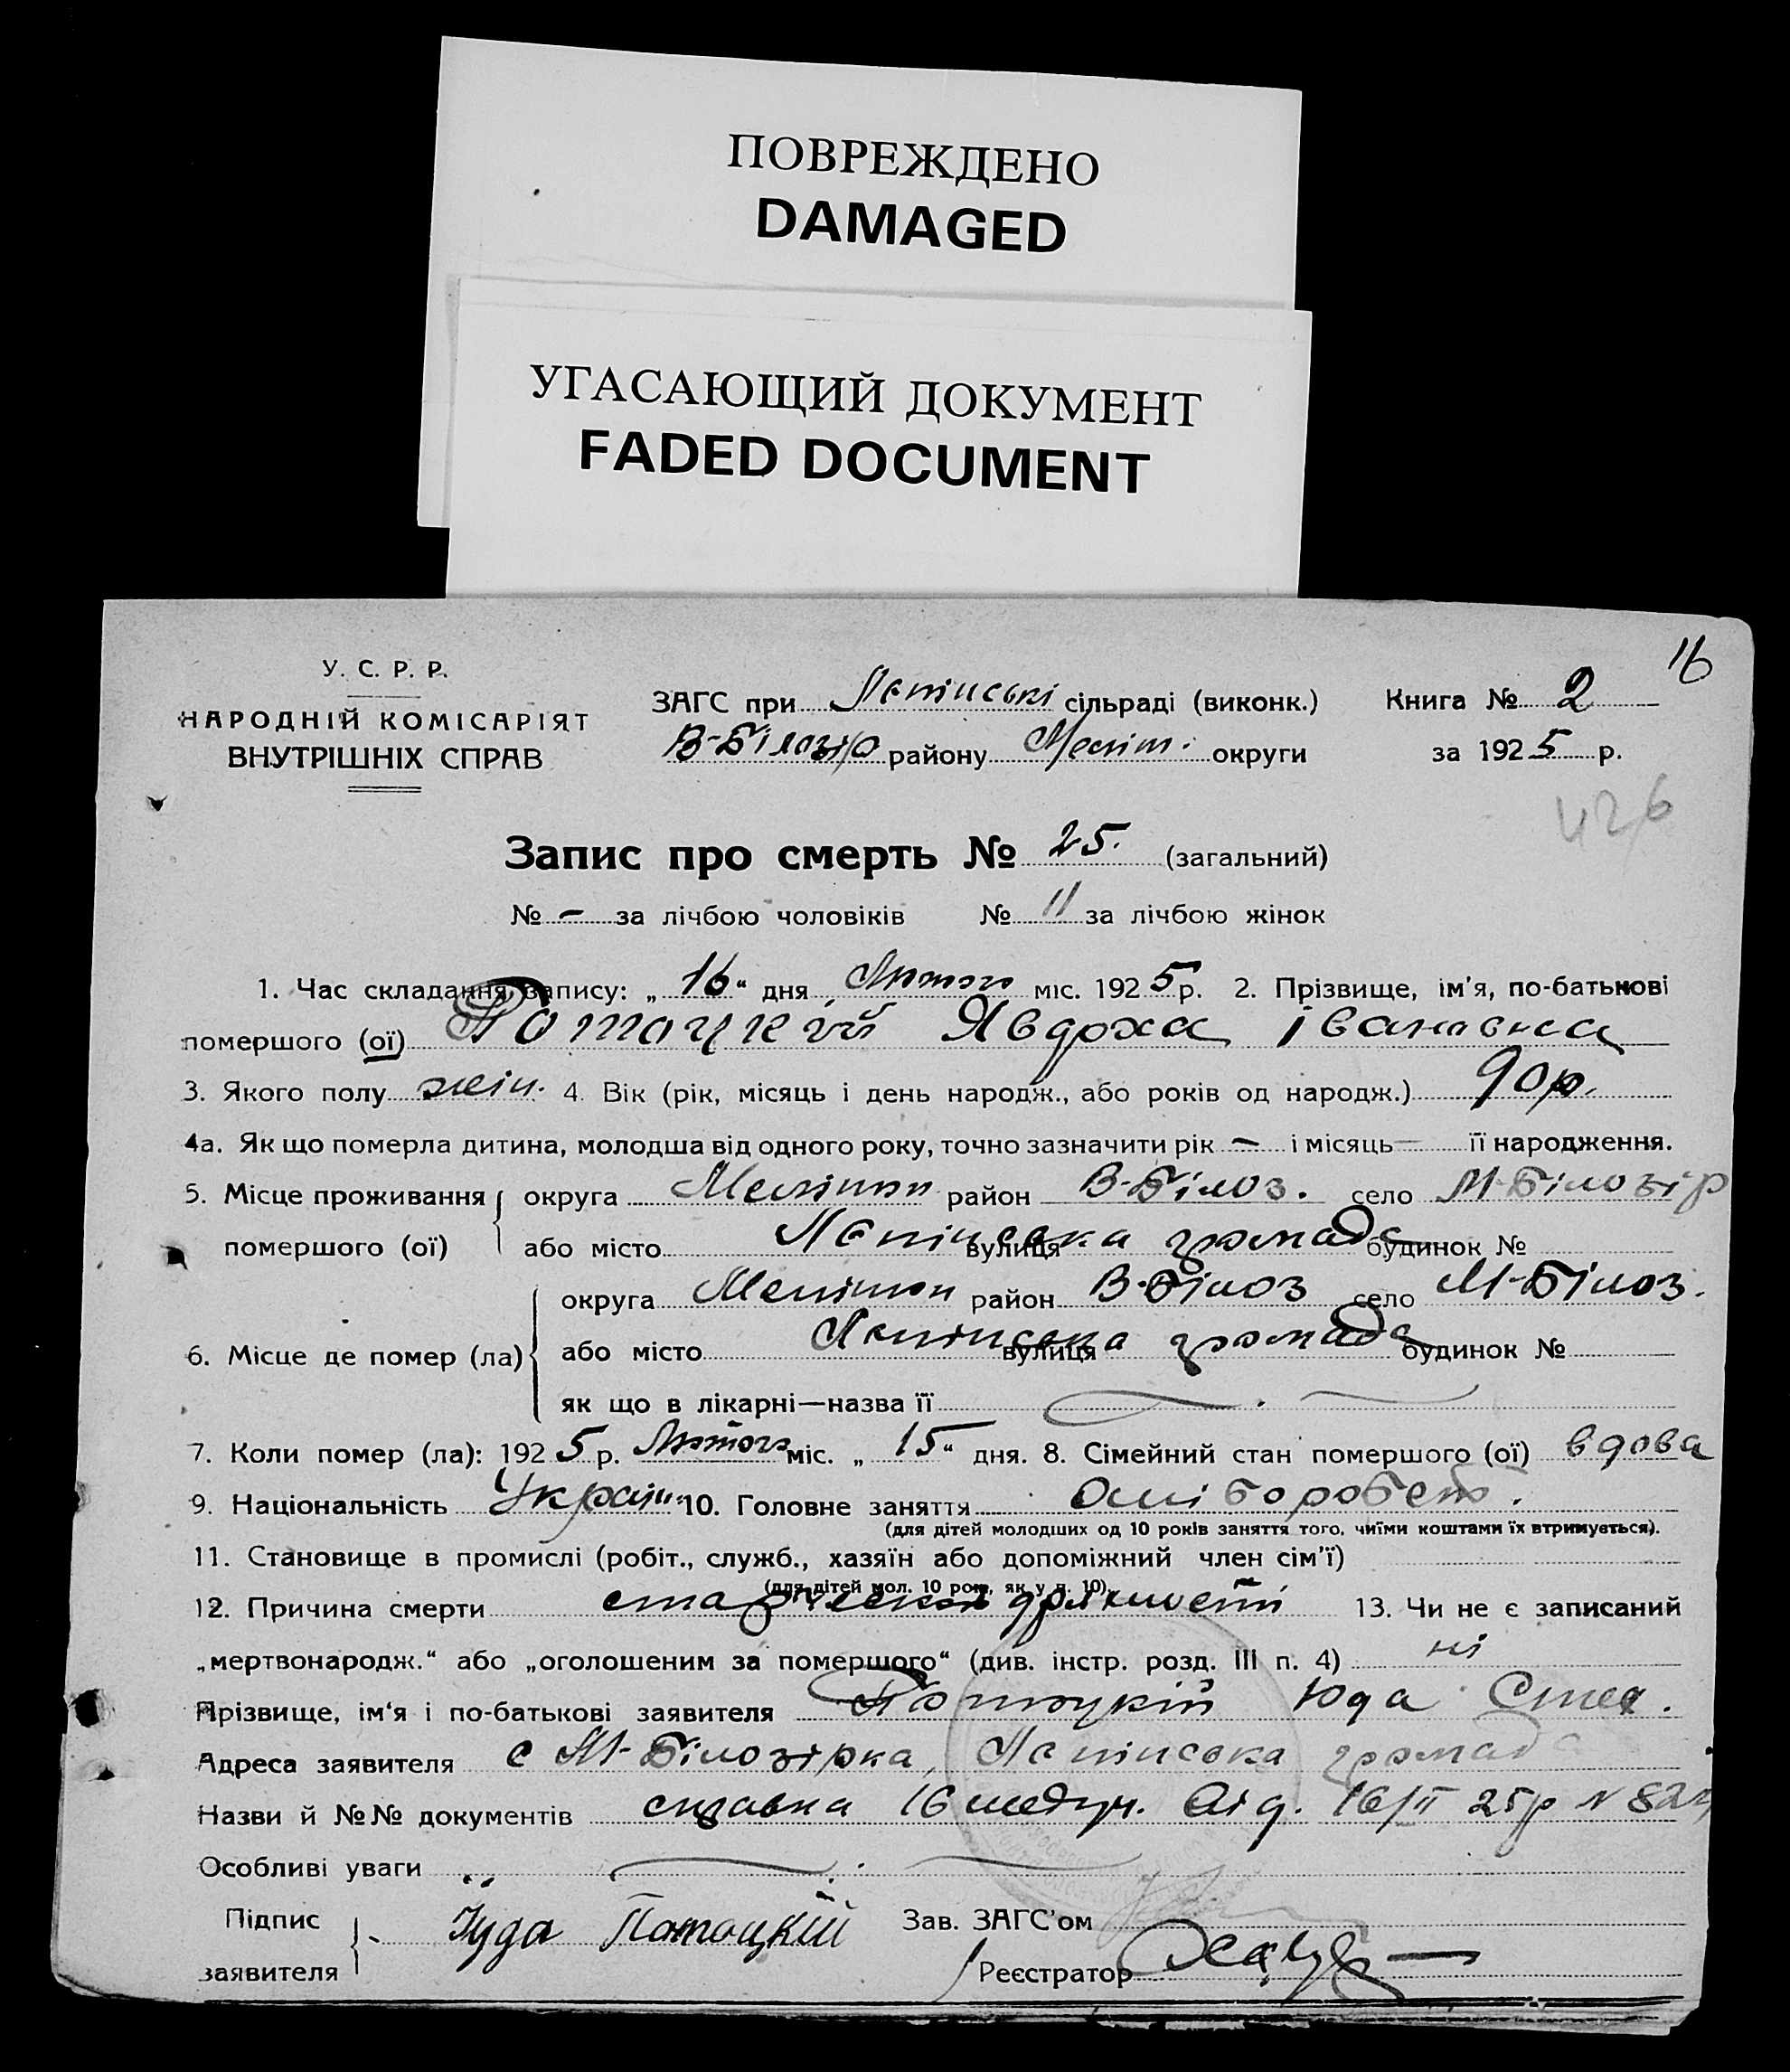 ПОВРЕЖДЕНО
DAMAGED
УГАСАЮЩИЙ ДОКУМЕНТ
FADED DOCUMENT
16
У. С. Р. Р.
НАРОДНІЙ КОМІСАРІЯТ
ВНУТРІШНІХ СПРАВ
ЗАГС при сільраді (виконк.) Книга № 2
В-Білозір району Меліт. округи за 1925 р.
426
Запис про смерть № 25. (загальний)
№ – за лічбою чоловіків № 11 за лічбою жінок
1. Час складання запису: „16“ дня Лютого міс. 1925 р. 2. Прізвище, ім'я, по-батькові
помершого (ої) Потоцкій Явдоха Івановна
3. Якого полу жін. 4. Вік (рік, місяць і день народж., або років од народж.) 90 р.
4а. Як що померла дитина, молодша від одного року, точно зазначити рік – і місяць – її народження.
5. Місце проживання округа Мелітоп район В-Білоз. село М-Білозір
помершого (ої) або місто вулиця громада будинок №
округа Мелітоп район В-Білоз село М-Білоз.
6. Місце де помер (ла) або місто вулиця громада будинок №
як що в лікарні—назва її
7. Коли помер (ла): 1925 р. Лютого міс. „15“ дня. 8. Сімейний стан помершого (ої) вдова
9. Національність Україн. 10. Головне заняття
(для дітей молодших од 10 років заняття того, чиїми коштами їх втримується).
11. Становище в промислі (робіт., служб., хазяїн або допоміжний член сім'ї)
(для дітей мол. 10 рок, як у п. 10).
12. Причина смерти 13. Чи не є записаний
„мертвонародж.“ або „оголошеним за помершого“ (див. інстр. розд. III п. 4) ні
Прізвище, ім'я і по-батькові заявителя Потоцкій Юда
Адреса заявителя с М-Білозірка, громада
Назви й №№ документів справка 16 16/II 25р N
Особливі уваги
Підпис Іуда Потоцкій Зав. ЗАГС'ом
заявителя Реєстратор